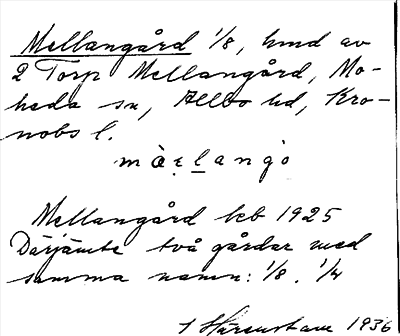 Mellangård 1/8, hmd av
2 Torp Mellangård, Mo-
heda sn, Allbo hd, Kro-
nobs l.
mæ̀ḷlango
Mellangård keb 1925
Därjämte två gårdar med
samma namn: 1/8. 1/4
1936